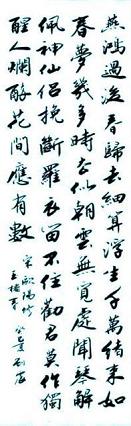 燕鴻過後春歸去細算浮生千萬緒來如
春夢幾多時去似朝雲無覓處聞琴解
佩神仙侶挽斷羅衣留不住勸君莫作獨
醒人爛醉花間應有數
宋歐陽修
玉樓春
癸巳夏